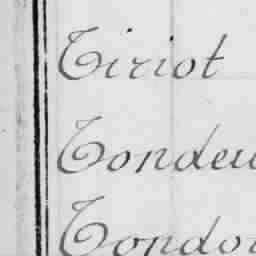 Tiriot
Tondeu
Tondo